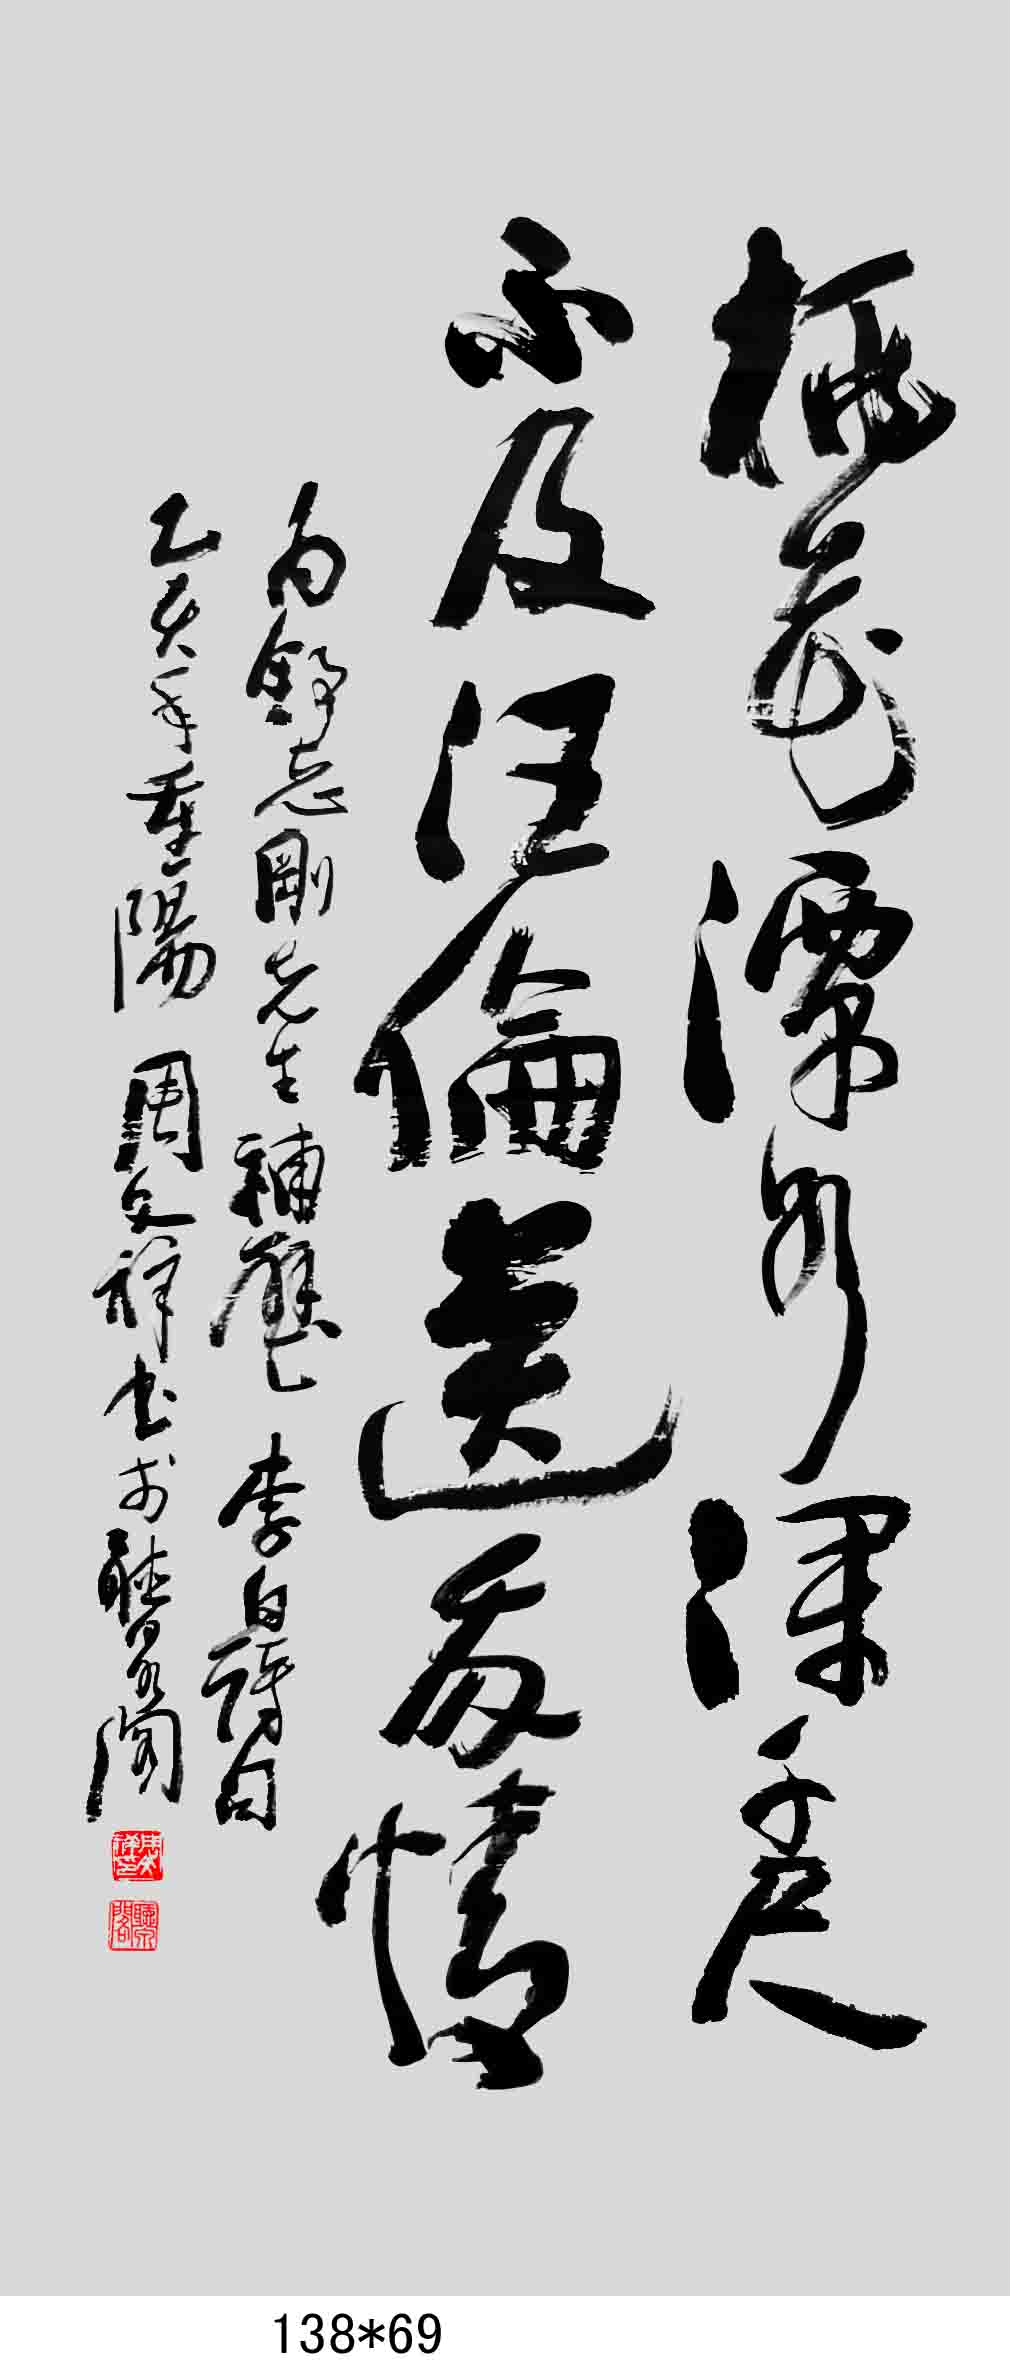 桃花潭水深千尺
不及汪倫送我情
為舒志剛先生補壁 李白詩句
乙亥年重陽 周文祥書於聽泉閣
138*69